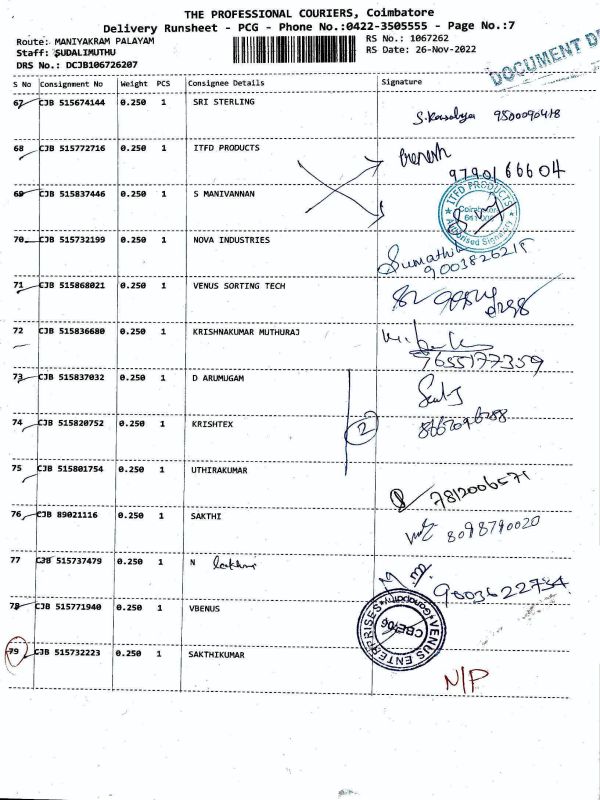 THE PROFESSIONAL COURIERS, Coimbatore
Delivery Runsheet - PCG - Phone No.:0422-3505555 - Page No.:7
Route: MANIYAKRAM PALAYAM
RS No.: 1067262
Staff: SUDALIMUTHU
RS Date: 26-Nov-2022
DRS No.: DCJB106726207
DOCUMENT
S No Consignment No Weight PCS Consignee Details Signature
67 CJB 515674144 0.250 1 SRI STERLING
68 CJB 515772716 0.250 1 ITFD PRODUCTS 9790166604
69 CJB 515837446 0.250 1 S MANIVANNAN
ITFD PRODUCTS
Authorised Signatory
70 CJB 515732199 0.250 1 NOVA INDUSTRIES Sumathi
9003826215
71 CJB 515868021 0.250 1 VENUS SORTING TECH
72 CJB 515836680 0.250 1 KRISHNAKUMAR MUTHURAJ
73 CJB 515837032 0.250 1 D ARUMUGAM
74 CJB 515820752 0.250 1 KRISHTEX 2
75 CJB 515801754 0.250 1 UTHIRAKUMAR 7812006571
76 CJB 89021116 0.250 1 SAKTHI 8098790020
77 CJB 515737479 0.250 1 N 9003622734
78 CJB 515771940 0.250 1 VBENUS
VENUS ENTERPRISES
Ganapathy
79 CJB 515732223 0.250 1 SAKTHIKUMAR N/P